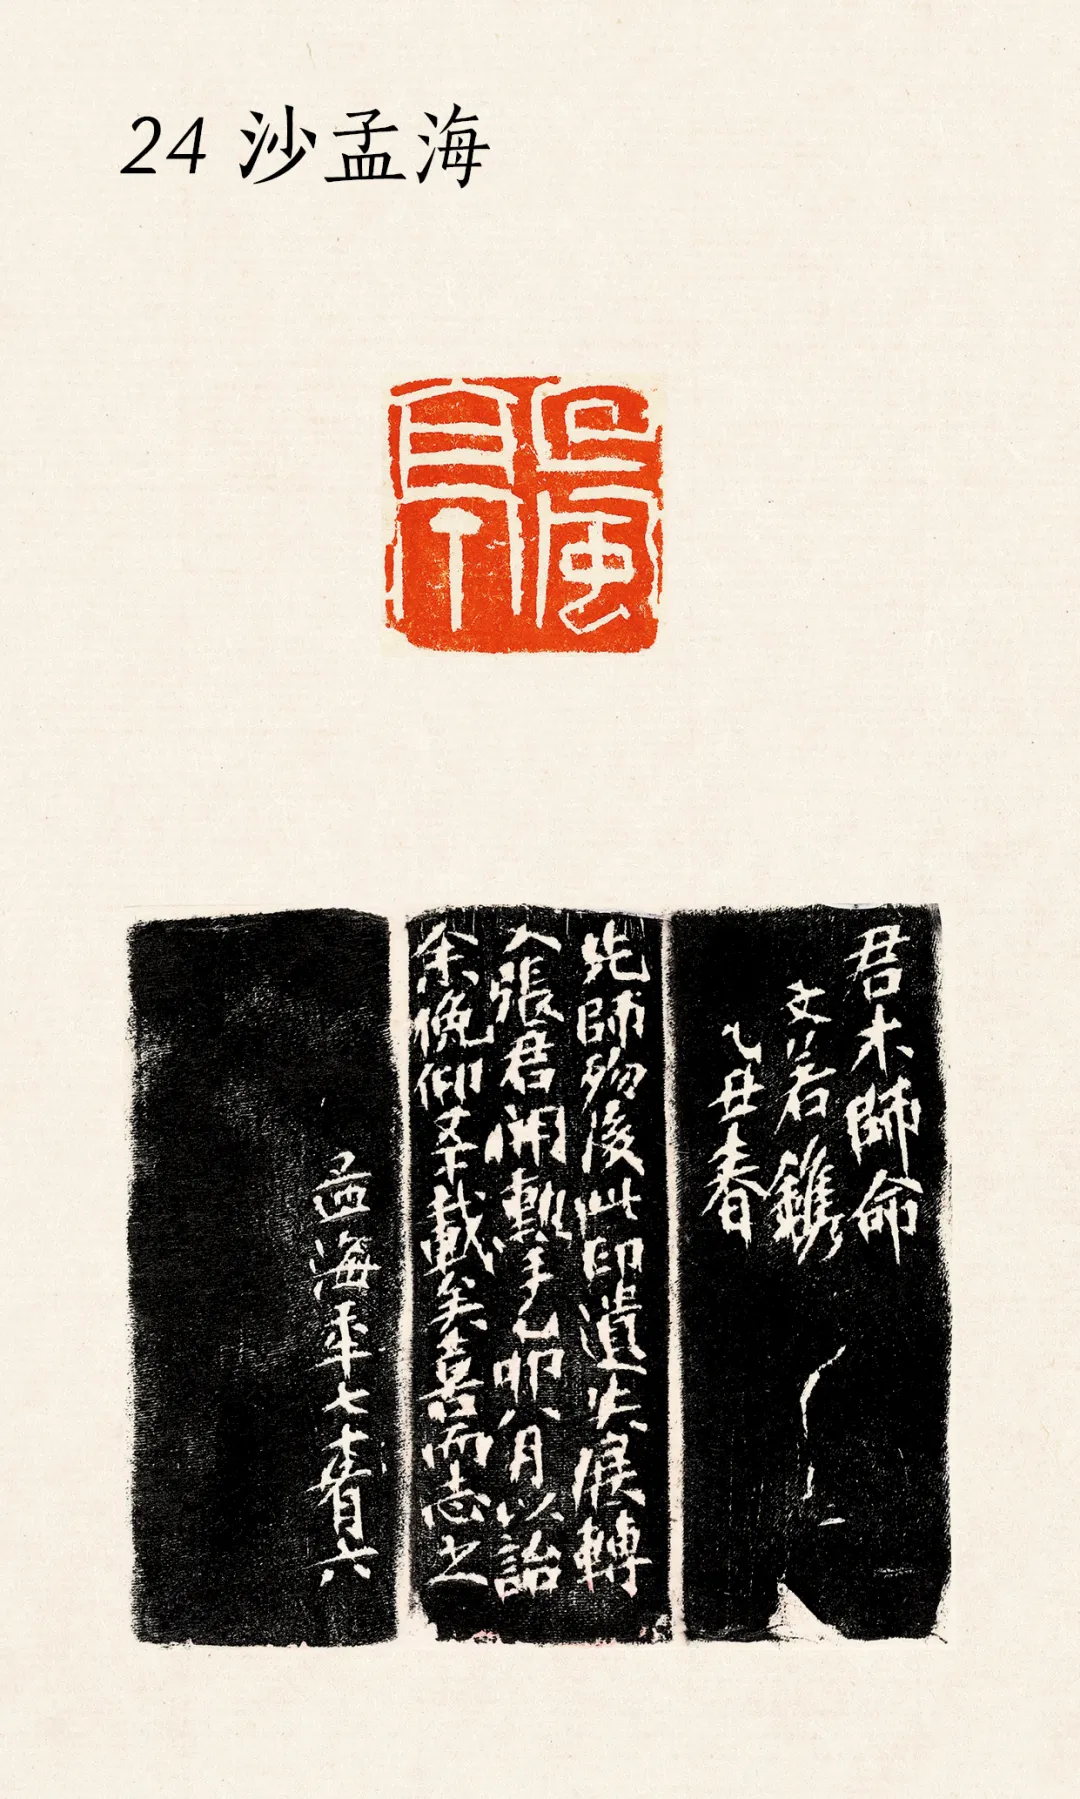 24 沙孟海
回風亭
君木師命
文若鐫
乙丑春
先師歿後此印遺失展轉
入張君開勳手乙卯八月以詒
余俛仰五十載矣喜而志之
孟海年七十有六